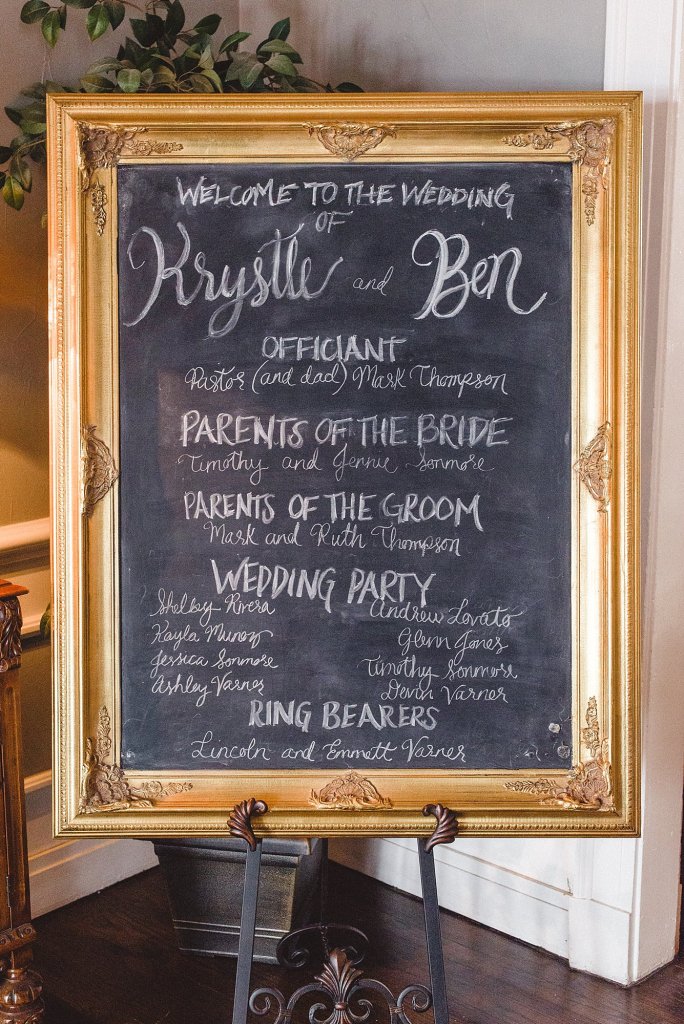 WELCOME TO THE WEDDING
OF
Krystle and Ben
OFFICIANT
Pastor (and dad) Mark Thompson
PARENTS OF THE BRIDE
Timothy and Jennie Sonmore
PARENTS OF THE GROOM
Mark and Ruth Thompson
WEDDING PARTY
Shelby Rivera Andrew Lovato
Kayla Munoz Glenn Jones
Jessica Sonmore Timothy Sonmore
Ashley Varner Devin Varner
RING BEARERS
Lincoln and Emmett Varner